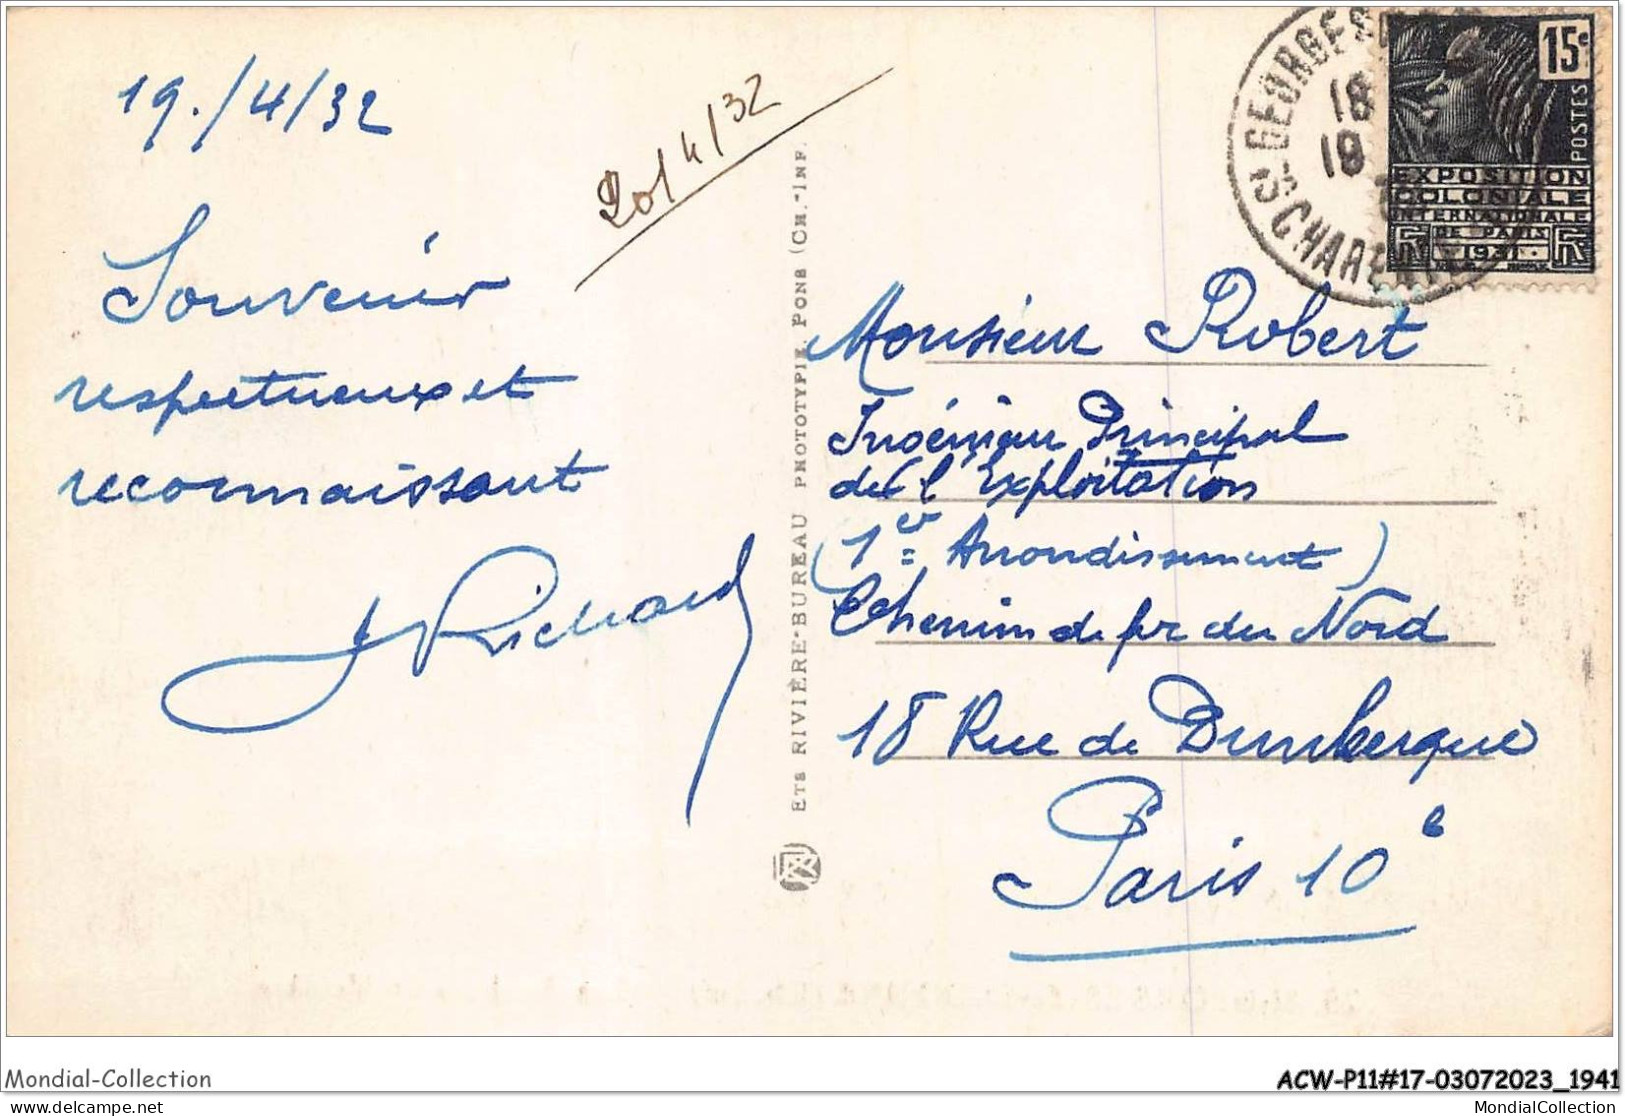 19./4/32
Souvenir
respectueux et
reconnaissant
J Richard
20/4/32
ETS RIVIÈRE-BUREAU PHOTOTYPIE. PONS (CH.-INF.
ST GEORGES
18
19
CHARENTE
15c
POSTES
EXPOSITION
COLONIALE
INTERNATIONALE
DE PARIS
1931
RF RF
Monsieur Robert
Ingénieur Principal
de l'Exploitation
(1er Arrondissement)
Chemin de fer du Nord
18 Rue de Dunkerque
Paris 10e
Mondial-Collection
ACW-P11#17-03072023_1941
delcampe.net
MondialCollection